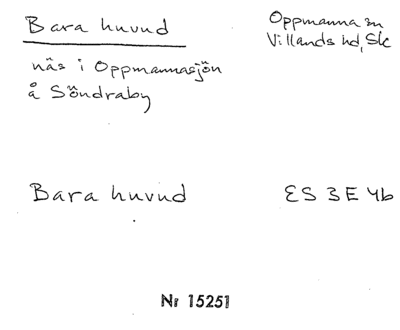 Bara huvud
Oppmanna sn
Villands hd, Sk
näs i Oppmannasjön
å Söndraby
Bara huvud
ES 3E 4b
Nr 15251